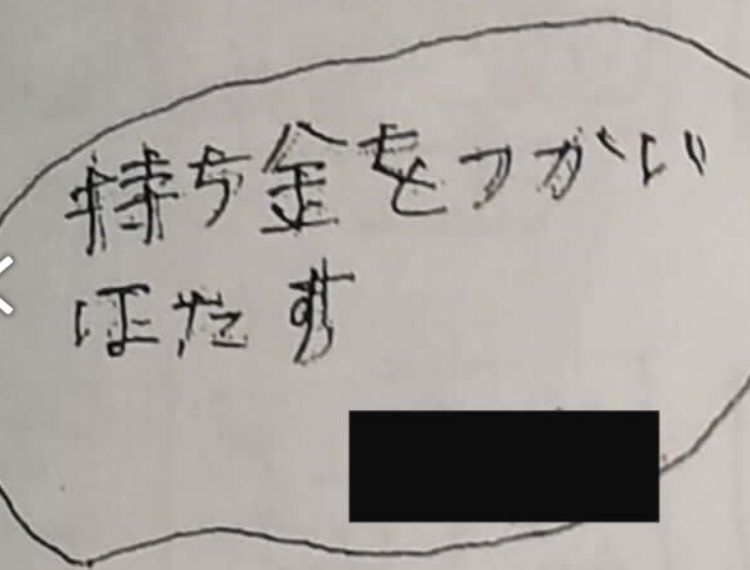 持ち金をつかい
ほたす